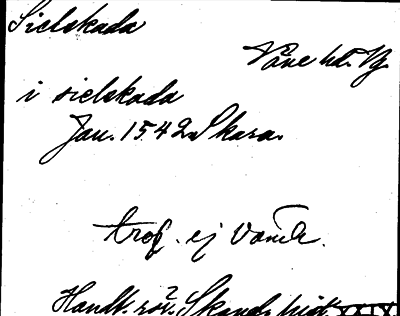 Sielskada
Våne hd. Vg
i sielskada
Jan. 1542. Skara.
trol. ej Vänern.
Handl. rör. Skand. hist. XXIX